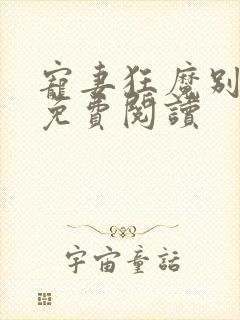 寵妻狂魔別
免費閱讀
宇宙童話